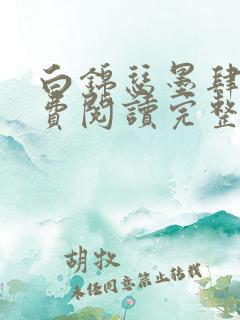 白錦瑟墨肆
費閱讀完整
胡牧
未任同意禁止轉載